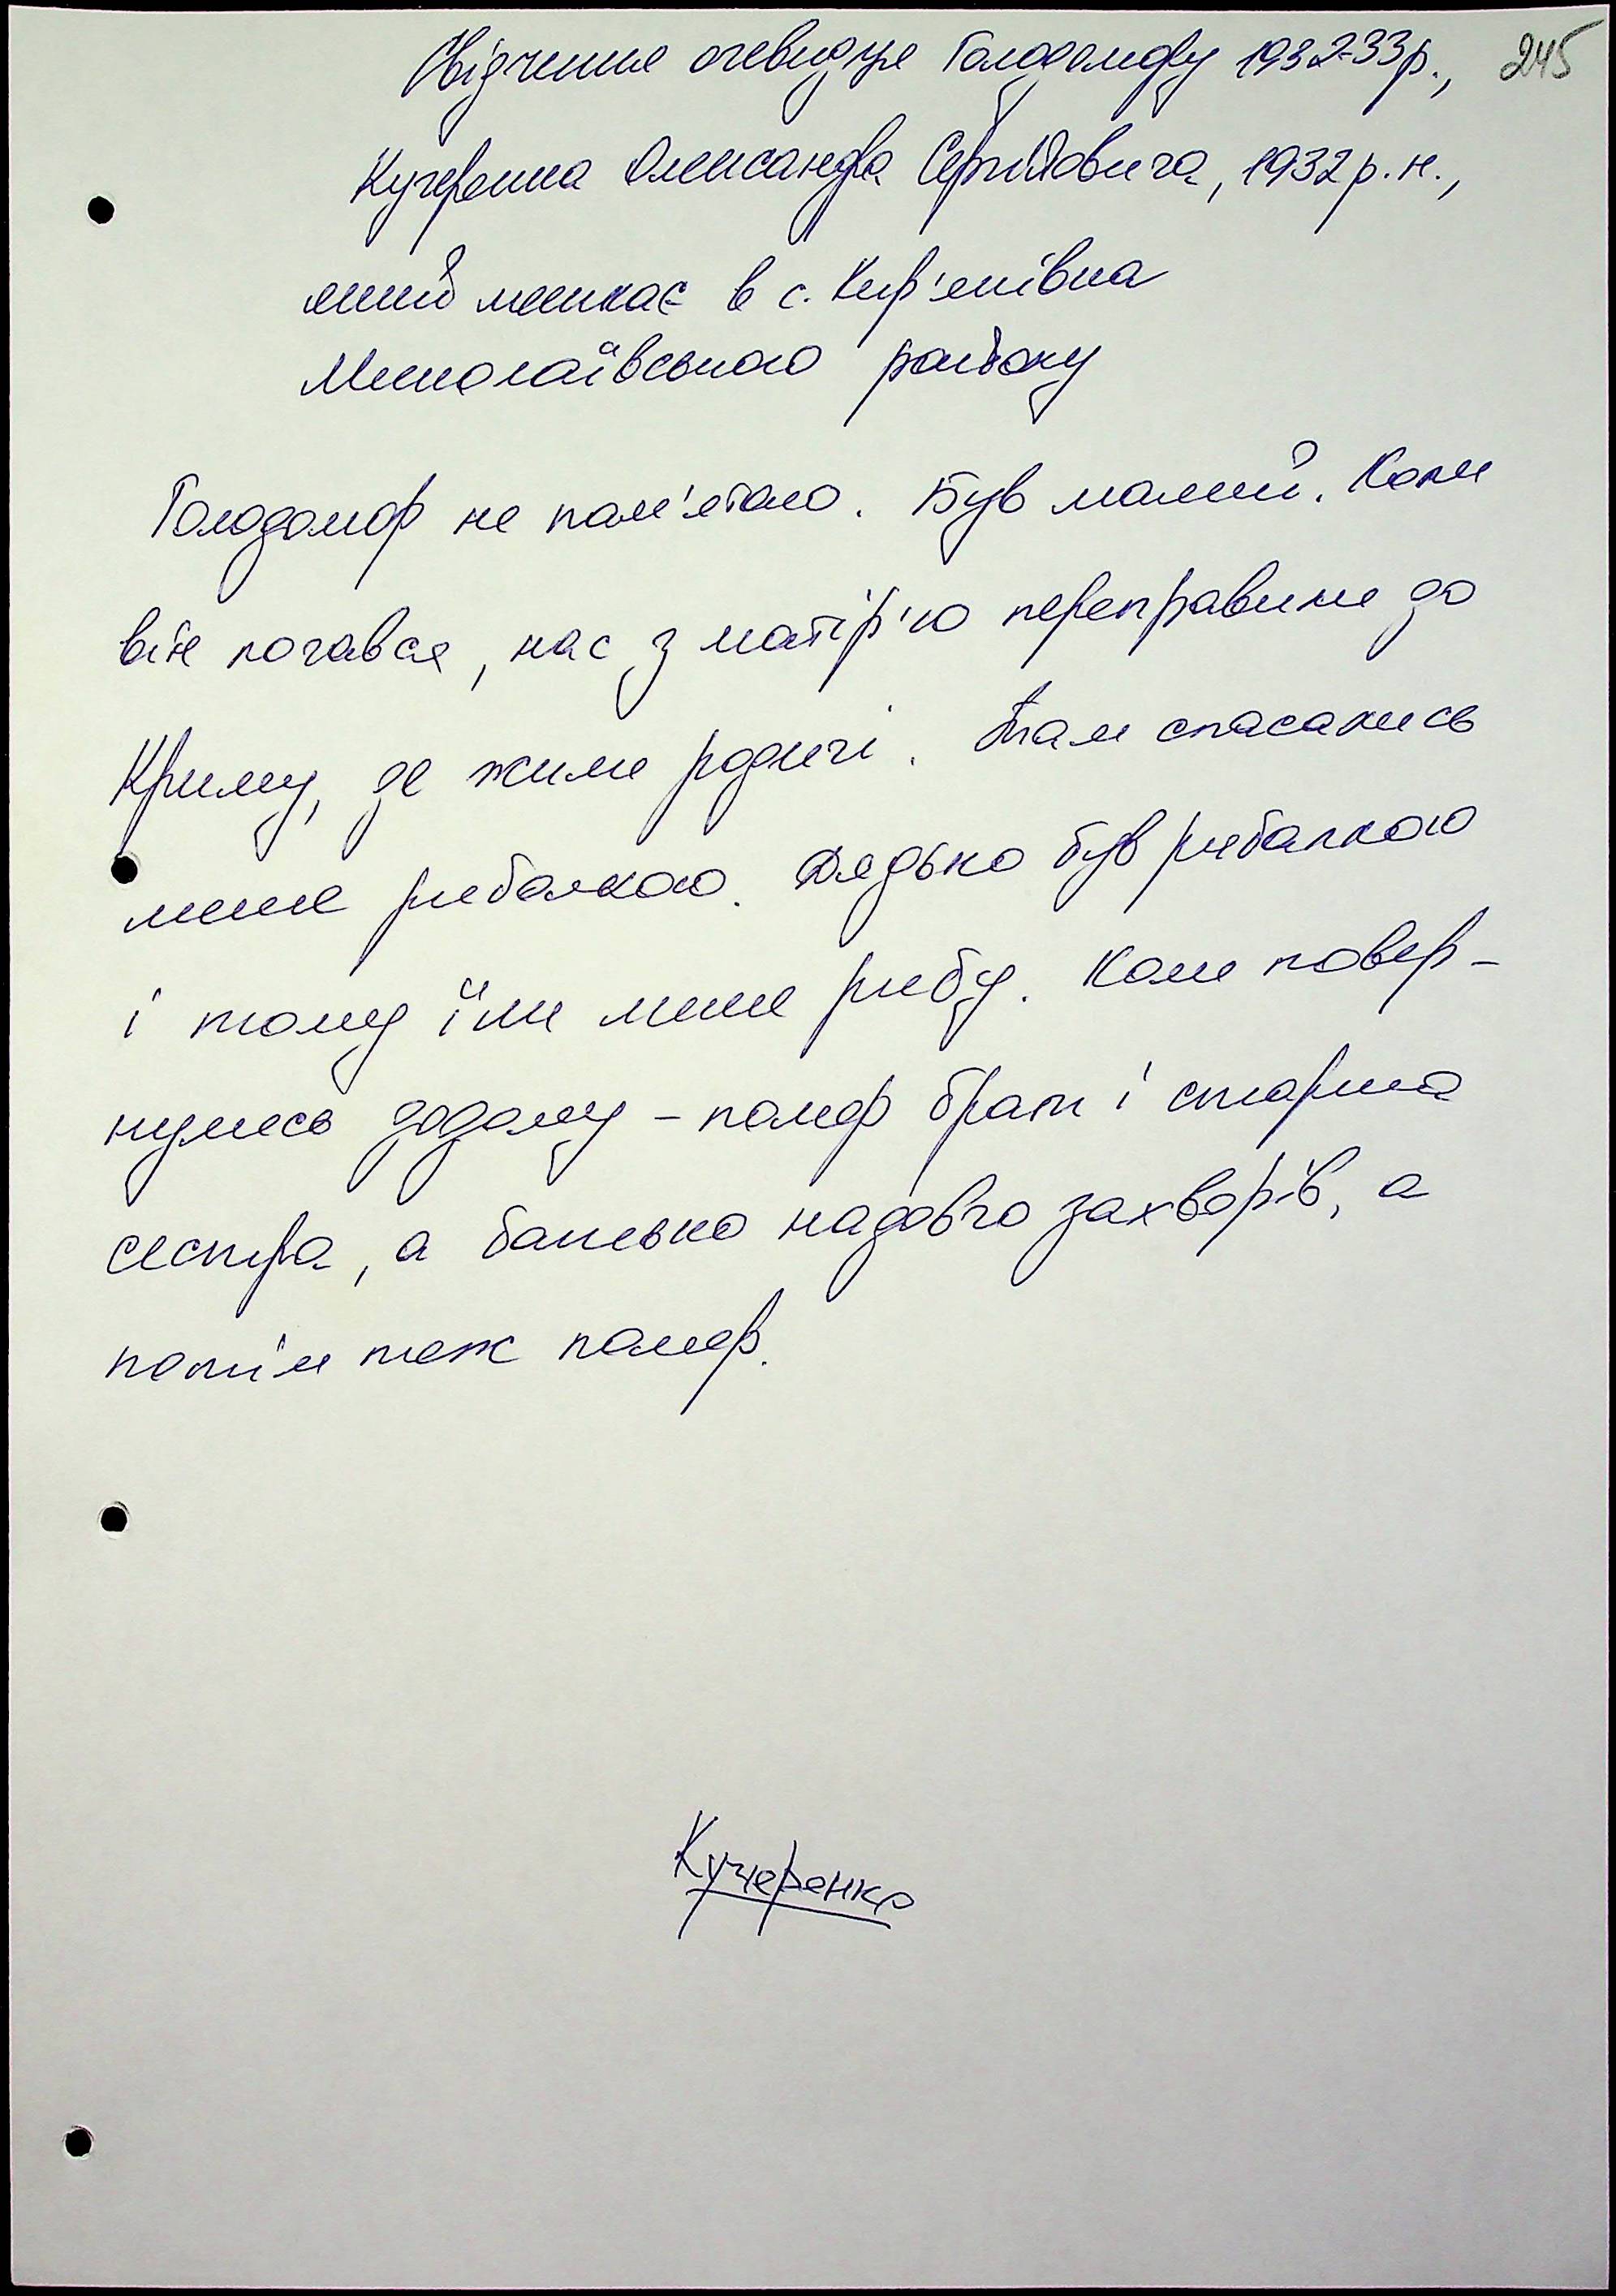 Свідчення очевидця Голодомору 1932-33р., 245
Кучеренка Олександра Сергійовича, 1932 р. н.,
який мешкає в с. Кир'янівка
Миколаївського району
Голодомор не пам'ятаю. Був малий. Коли
він почався, нас з матір'ю переправили до
Криму, де жили родичі. Там спасались
лише рибалкою. Дядько був рибалкою
і тому їли лише рибу. Коли повер-
нулись додому - помер брат і старша
сестра, а батько надовго захворів, а
потім теж помер.
Кучеренко